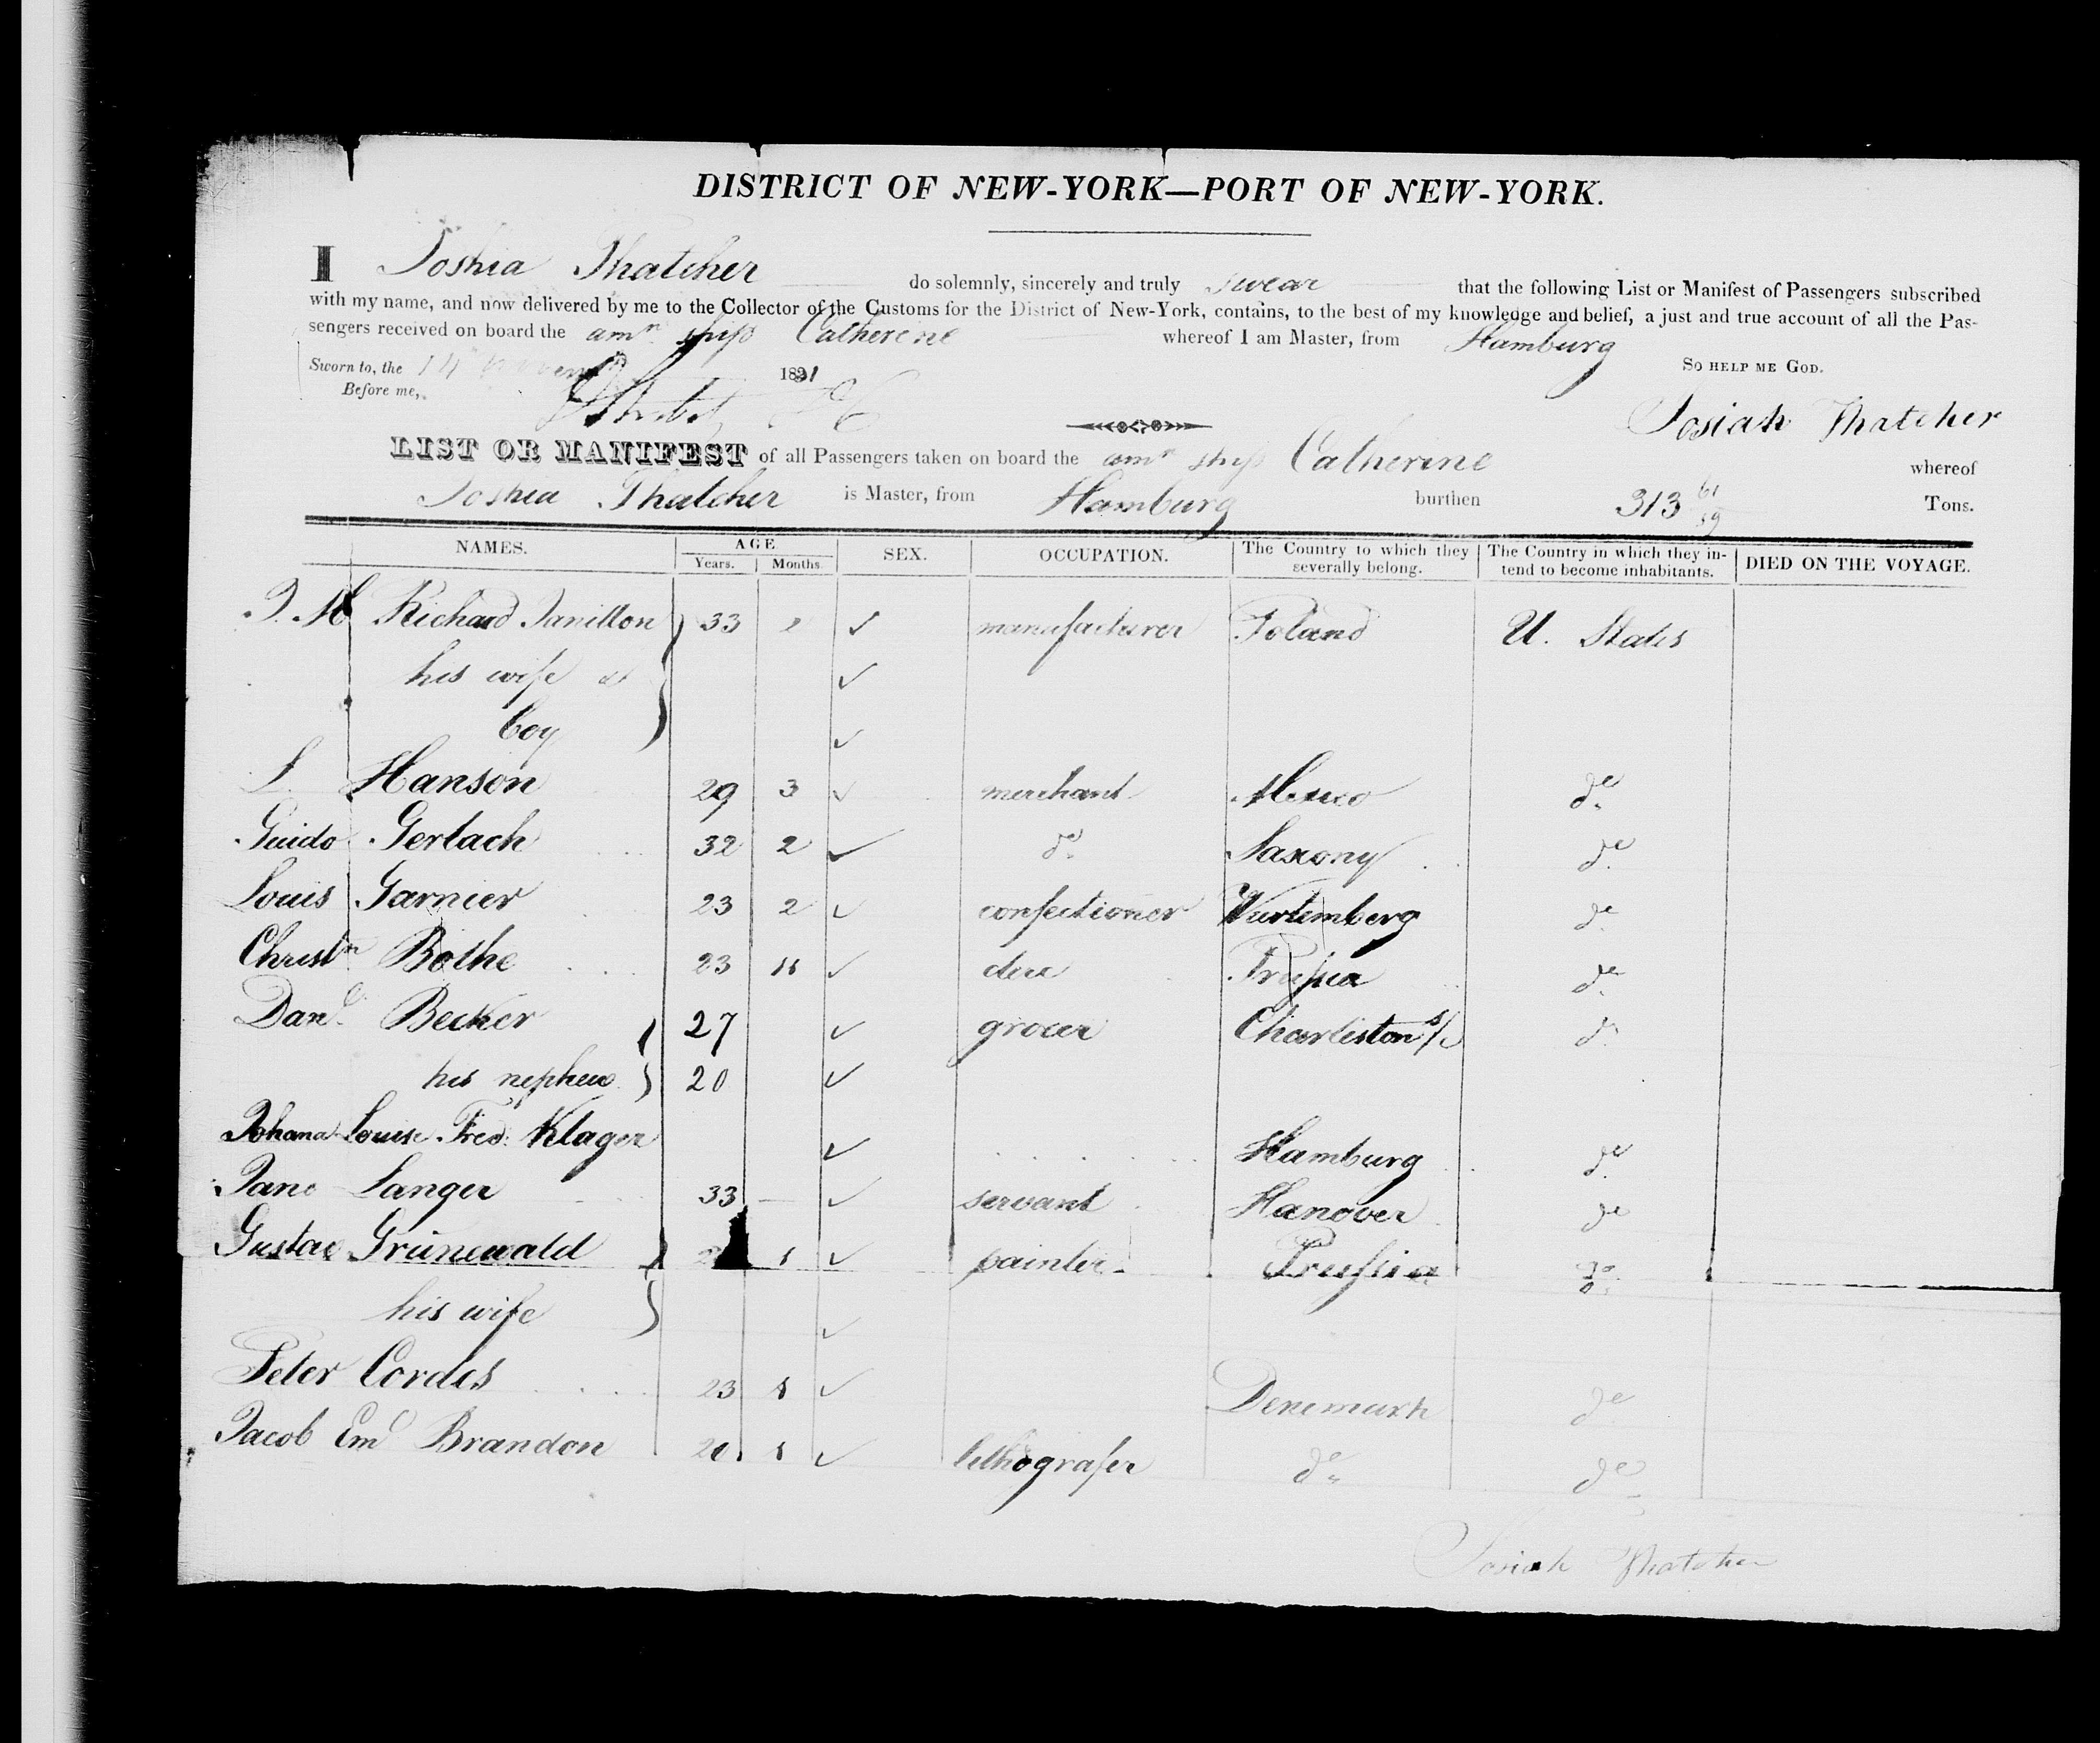 DISTRICT OF NEW-YORK—PORT OF NEW-YORK.
I Joshia Thatcher do solemnly, sincerely and truly swear that the following List or Manifest of Passengers subscribed
with my name, and now delivered by me to the Collector of the Customs for the District of New-York, contains, to the best of my knowledge and belief, a just and true account of all the Pas-
sengers received on board the amn ship Catherine whereof I am Master, from Hamburg
Sworn to, the 14 1831 SO HELP ME GOD.
Before me,
Josiah Thatcher
LIST OR MANIFEST of all Passengers taken on board the amn ship Catherine whereof
Joshia Thatcher is Master, from Hamburg burthen 313 Tons.
NAMES. AGE Years. Months. SEX. OCCUPATION. The Country to which they severally belong. The Country in which they intend to become inhabitants. DIED ON THE VOYAGE.
Richard 33 2 ✓ manufacturer Poland U. States
his wife & ✓
boy ✓
Hanson 29 3 ✓ merchant do
Guido Gerlach 32 2 ✓ do Saxony do
Louis Garnier 23 2 ✓ confectioner Wurtemberg do
Christn Bothe 23 11 ✓ Prussia do
Danl Becker 27 ✓ grocer Charleston S/C do
his nephew 20 ✓
Johana Louise Fred: Klager ✓ Hamburg do
Jane Langer 33 — ✓ servant Hanover do
Gustav Grünewald 1 ✓ painter Prussia do
his wife ✓
Peter Cordes 23 1 ✓ Denemark do
Jacob Eml Brandon 20 1 ✓ lithografer do do
Josiah Thatcher